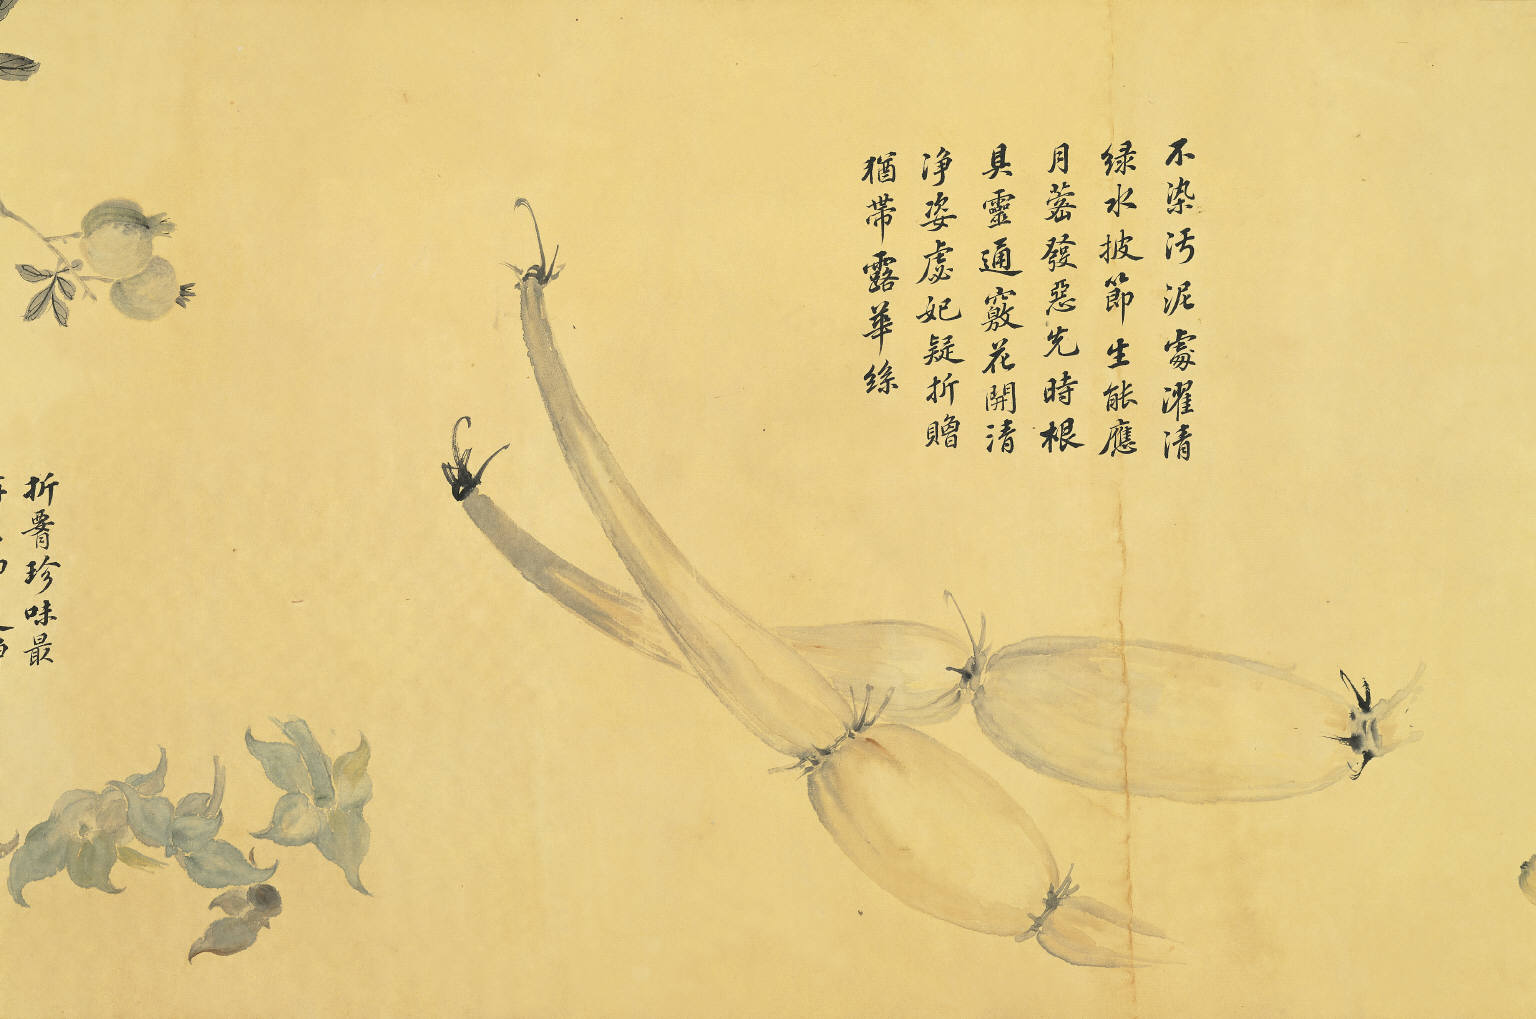 不染汚泥處濯清
綠水披節生能應
月蔤發惡先時根
具靈通竅花開清
淨姿虙妃疑折贈
猶帶露華絲
折珍味最